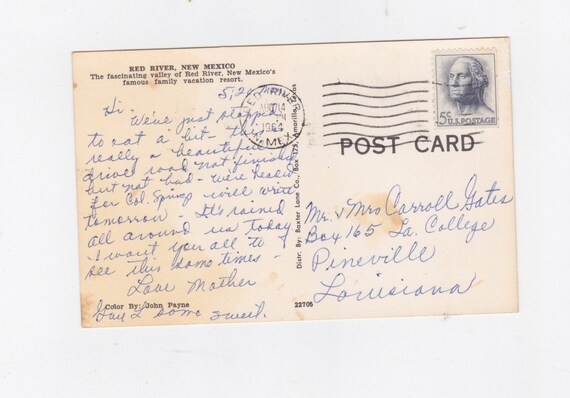 RED RIVER, NEW MEXICO
The fascinating valley of Red River, New Mexico's
famous family vacation resort.
Hi -
We've just stopped
to eat a bit - this
really a beautiful
drive road not finished
but not bad - we're headin
for Col. Springs will write
tomorrow - It's rained
all around us today
- I want you all to
see this some times -
Love Mother
Color By: John Payne
some sweet.
Distr. By: Baxter Lane Co., Box 173, Amarillo, Texas
22705
RED RIVER
N. MEX.
5¢ U.S. POSTAGE
POST CARD
Mr. & Mrs Carroll Gates
Box 165 La. College
Pineville
Louisiana